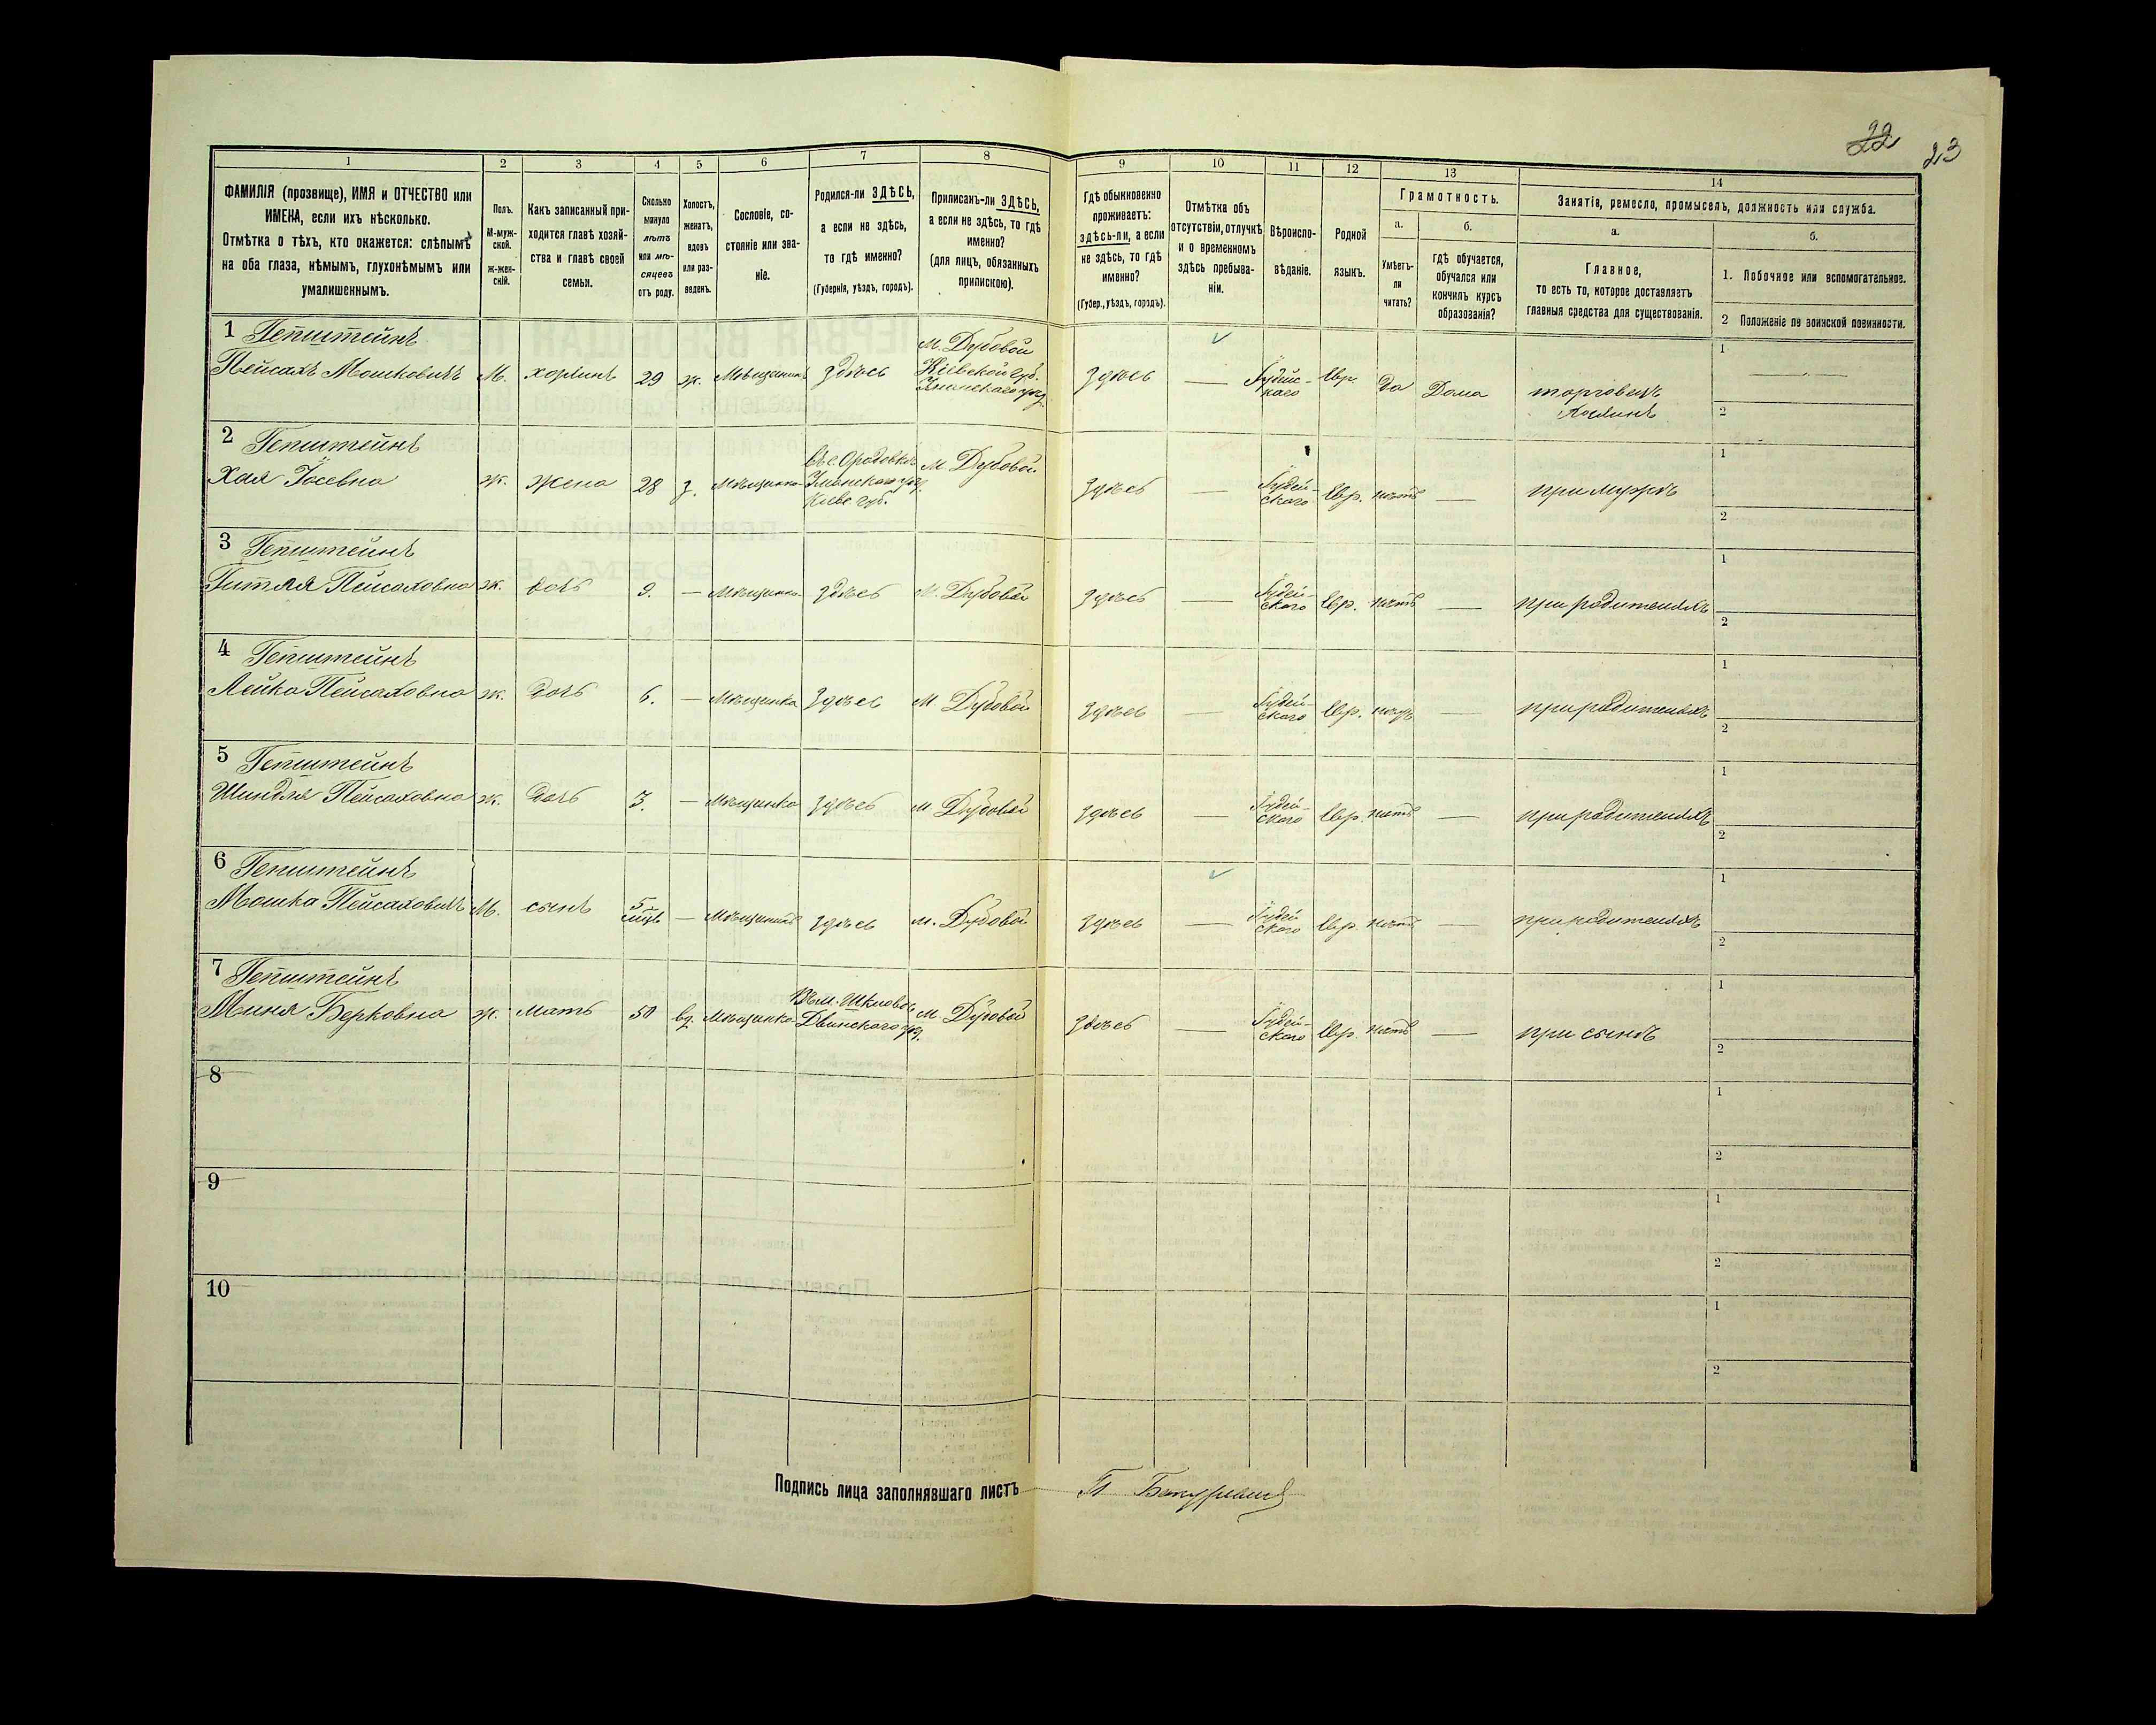 22 23
1 2 3 4 5 6 7 8 9 10 11 12 13 14
ФАМИЛІЯ (прозвище), ИМЯ и ОТЧЕСТВО или
ИМЕНА, если ихъ нѣсколько.
Отмѣтка о тѣхъ, кто окажется: слѣпымъ
на оба глаза, нѣмымъ, глухонѣмымъ или
умалишеннымъ.
Полъ.
М-муж-
ской.
ж-жен-
скій.
Какъ записанный при-
ходится главѣ хозяй-
ства и главѣ своей
семьи.
Сколько
минуло
лѣтъ
или мѣ-
сяцевъ
отъ роду.
Холостъ,
женатъ,
вдовъ
или раз-
веденъ.
Сословіе, со-
стояніе или зва-
ніе.
Родился-ли ЗДѢСЬ,
а если не здѣсь,
то гдѣ именно?
(Губернія, уѣздъ, городъ).
Приписанъ-ли ЗДѢСЬ,
а если не здѣсь, то гдѣ
именно?
(для лицъ, обязанныхъ
припискою).
Гдѣ обыкновенно
проживаетъ:
здѣсь-ли, а если
не здѣсь, то гдѣ
именно?
(Губер., уѣздъ, городъ).
Отмѣтка объ
отсутствіи, отлучкѣ
и о временномъ
здѣсь пребыва-
ніи.
Вѣроиспо-
вѣданіе.
Родной
языкъ.
Грамотность.
а.
Умѣетъ-
ли
читать?
б.
гдѣ обучается,
обучался или
кончилъ курсъ
образованія?
Занятіе, ремесло, промыселъ, должность или служба.
а.
Главное,
то есть то, которое доставляетъ
главныя средства для существованія.
б.
1. Побочное или вспомогательное.
2 Положеніе по воинской повинности.
1 Гепштейнъ
Пейсахъ Мошковичъ М. хозяинъ 29 ж. Мѣщанинъ здѣсь
м. Дубовой
Кіевской губ.
Уманскаго уѣз.
здѣсь — Іудейс-
каго
Евр. Да Дома торговецъ
1
2
2 Гепштейнъ
Хая Іосевна ж. жена 28 з. Мѣщанка
Уманскаго уѣз.
Кіевс. губ.
м. Дубовой здѣсь — Іудей-
скаго
Евр. нѣтъ — при мужѣ
1
2
3 Гепштейнъ
Гитля Пейсаховна ж. дочь 9. — Мѣщанка здѣсь м. Дубовой здѣсь — Іудей-
скаго
Евр. нѣтъ — при родителяхъ
1
2
4 Гепштейнъ
Лейка Пейсаховна ж. дочь 6. — Мѣщанка здѣсь м Дубовой здѣсь — Іудей-
скаго
Евр. нѣтъ — при родителяхъ
1
2
5 Гепштейнъ
Шиндля Пейсаховна ж. дочь 3. — Мѣщанка здѣсь м Дубовой здѣсь — Іудей-
скаго
Евр. нѣтъ — при родителяхъ
1
2
6 Гепштейнъ
Мошка Пейсаховичъ М. сынъ 5
— Мѣщанинъ здѣсь м. Дубовой здѣсь — Іудей
скаго
Евр. нѣтъ — при родителяхъ
1
2
7 Гепштейнъ
Миня Берковна ж. мать 50 вд. Мѣщанка
Въ м. Шкловѣ
Двинскаго уѣз.
м. Дубовой здѣсь — Іудей-
скаго
Евр. нѣтъ — при сынѣ
1
2
8
1
2
9
1
2
10
1
2
Подпись лица заполнявшаго листъ